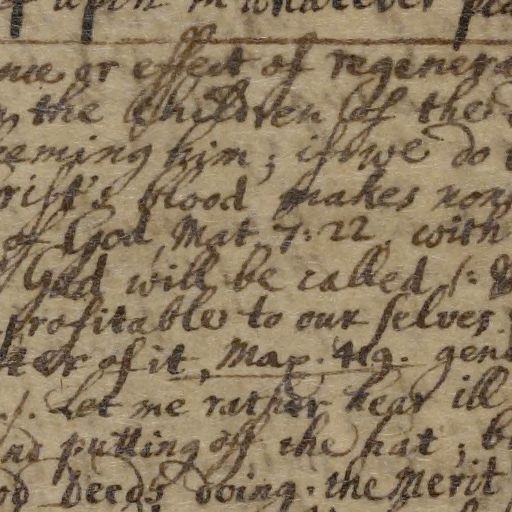 upon
or effect of regenera
the Children of the
eeming him; if we do
rist's blood makes non
of God, Mat. 7: 22. with
God will be called
profitable to our selves.
of it, Max. 419. gen
Let me rather hear ill
putting off the hat; b
deeds doing. the Merit